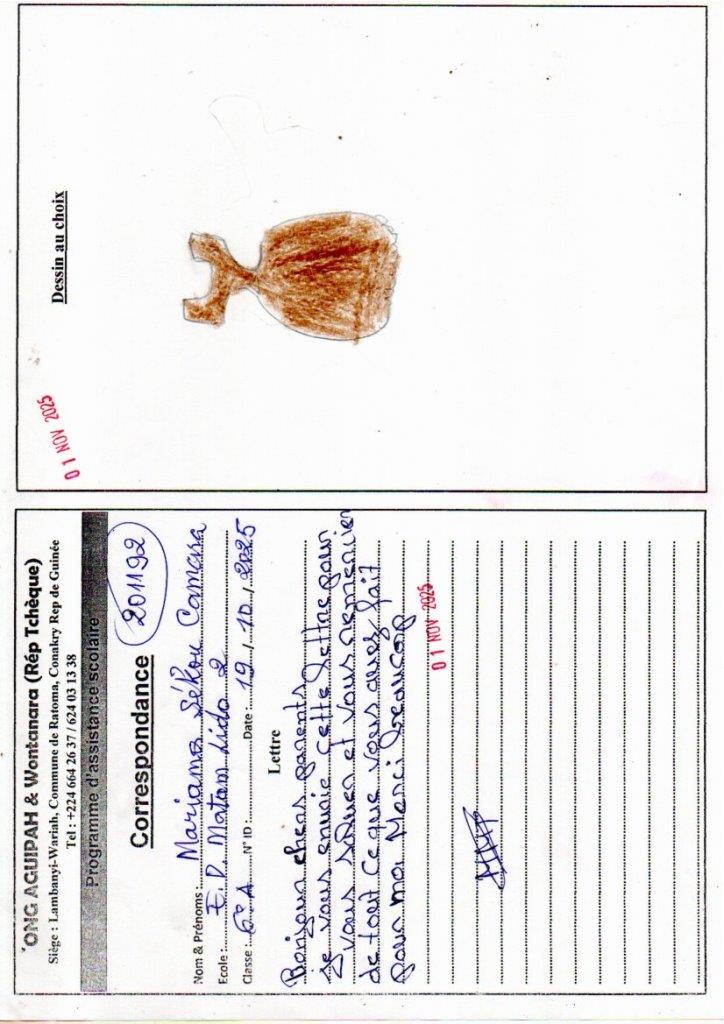 ONG AGUIPAH & Wontanara (Rép Tchèque)
Siège : Lambanyi-Wariah, Commune de Ratoma, Conakry Rep de Guinée
Tel : +224 664 26 37 / 624 03 13 38
Programme d'assistance scolaire
Correspondance
201192
Nom & Prénoms : Mariama Sékou Camara
Ecole : E.P. Matam Lido 2
Classe : 6e A N° ID : Date : 19 / 10 / 2025
Lettre
Bonjour chers parents
Je vous envoie cette lettre pour
vous saluer et vous remercier
de tout ce que vous avez fait
pour moi Merci beaucoup
01 NOV 2025
01 NOV 2025
Dessin au choix